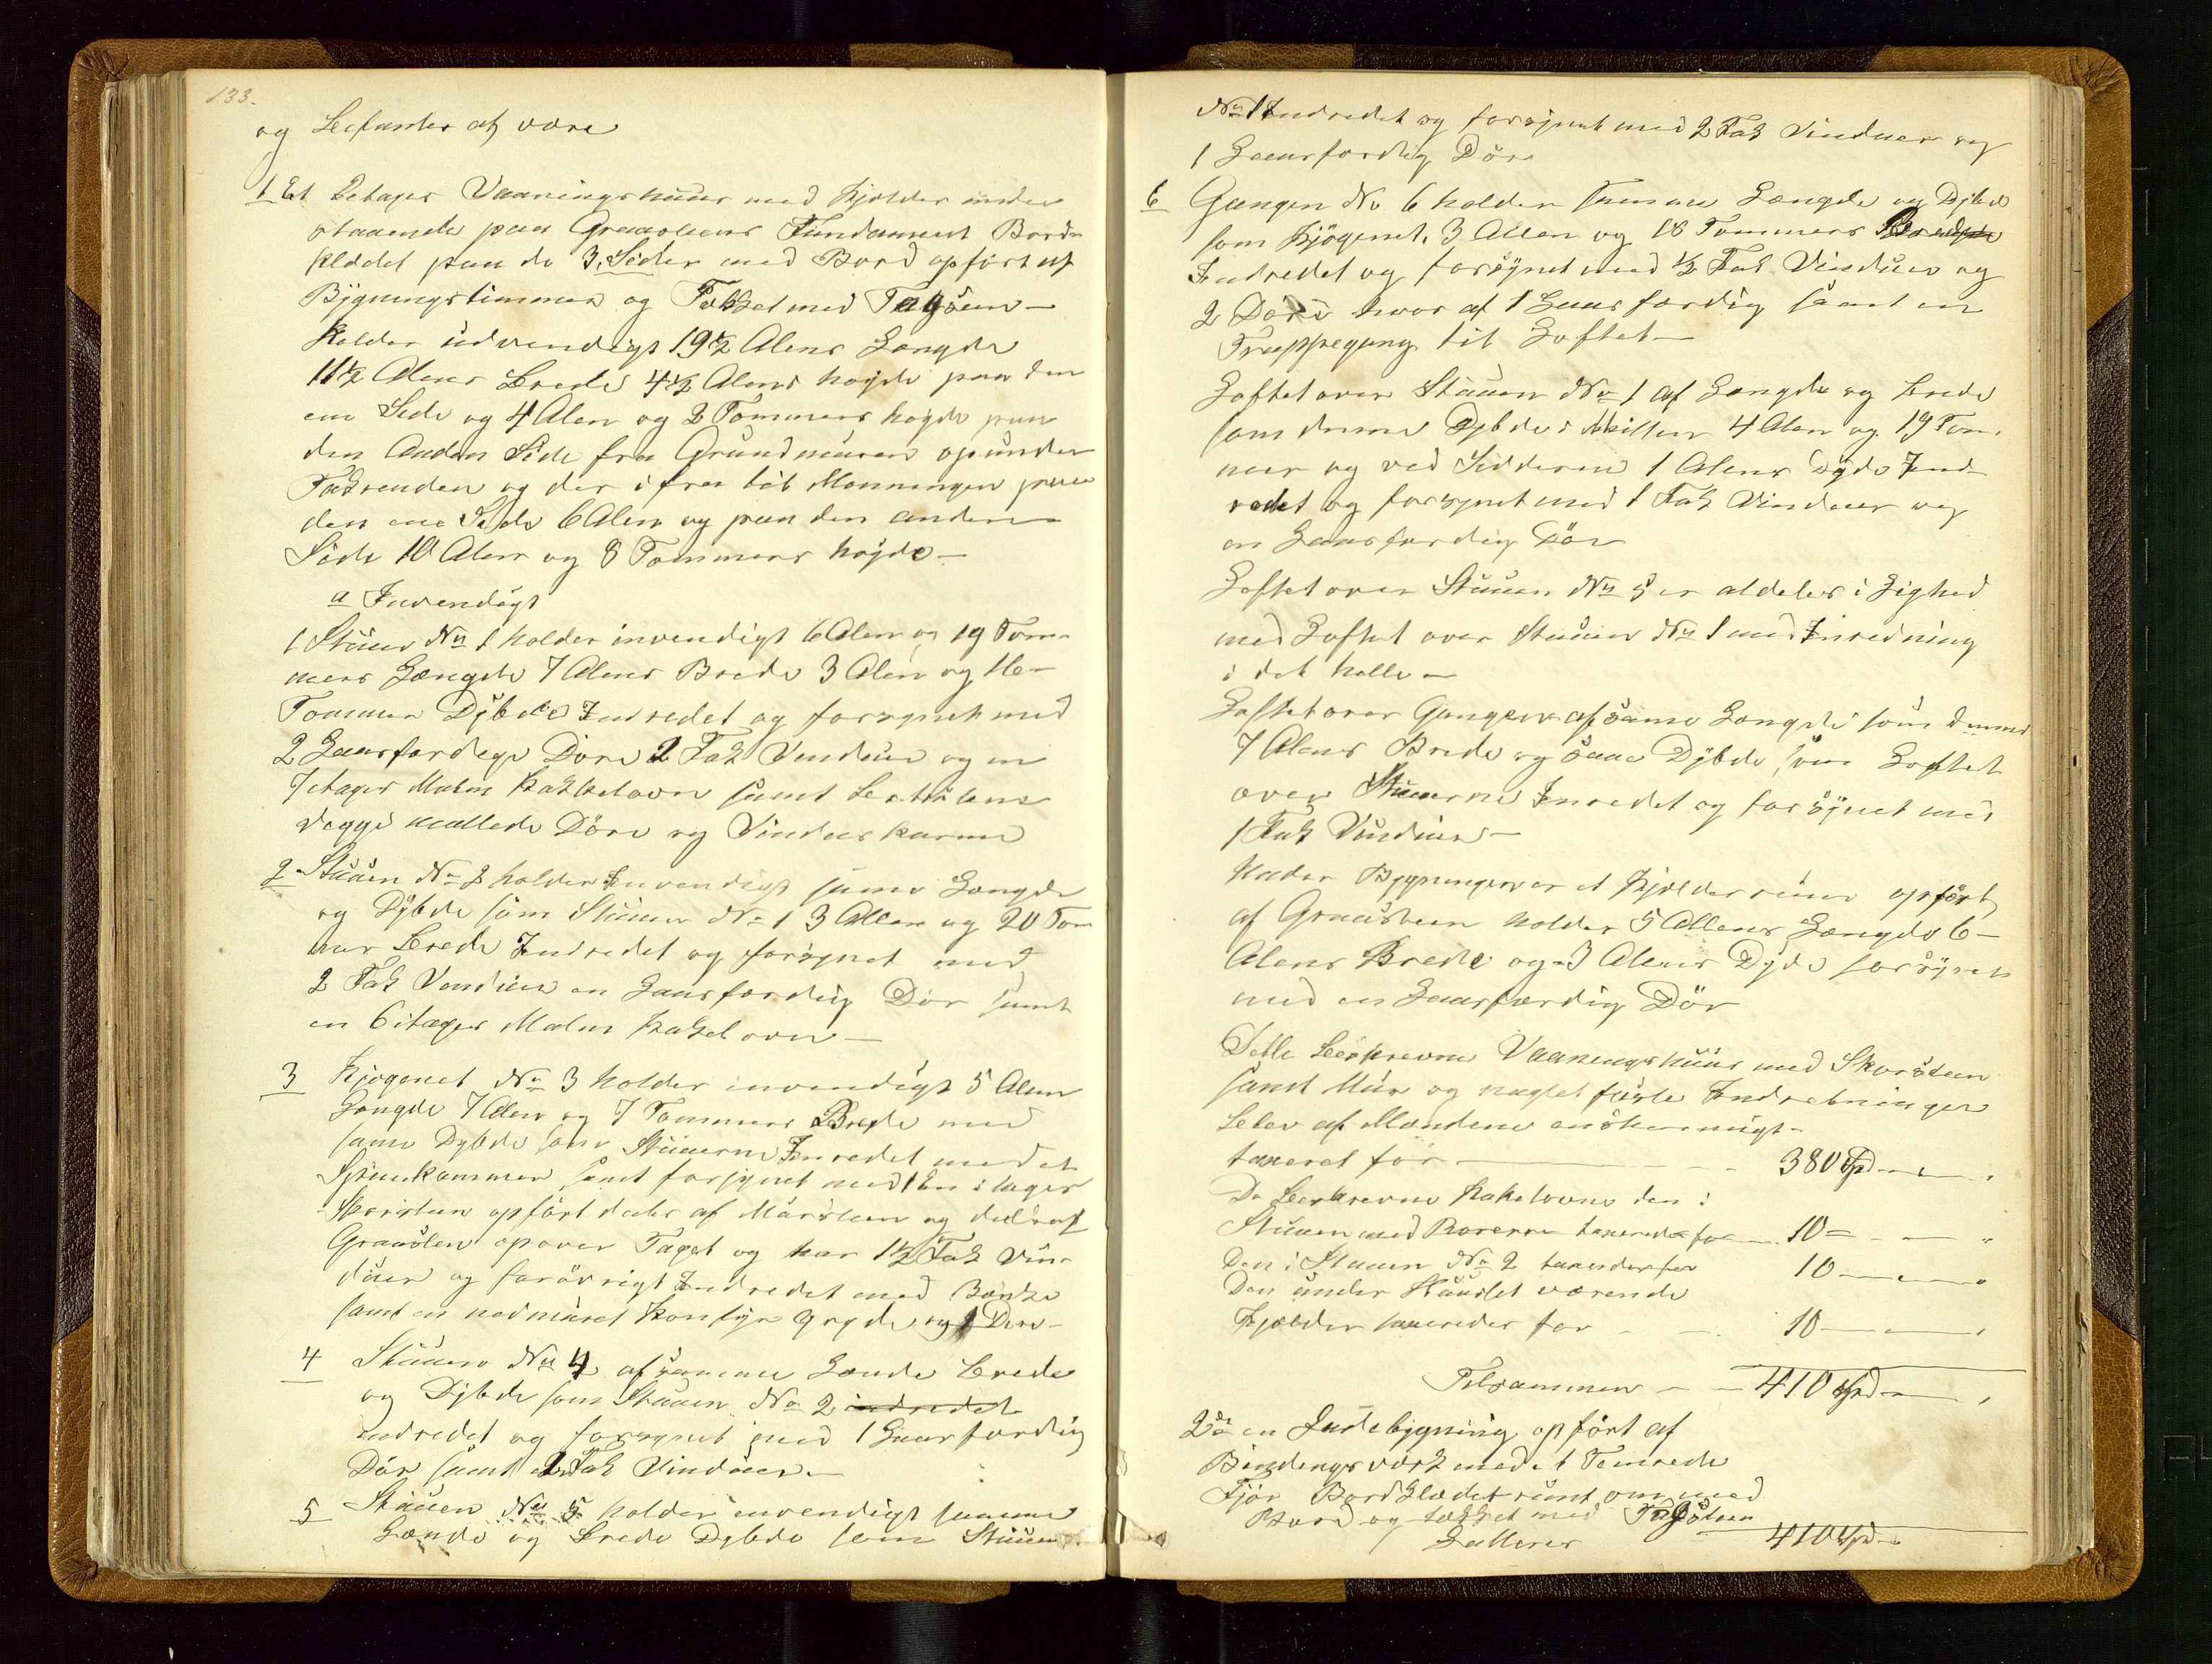 133.
og befantes at være
1 Et 2etages Vaaningshuus med Kjelder under
staaende paa Graasteens Fundament Bord=
klædet paa de 3, Sider med Bord opført af
Bygningstimmer og Tækket med Tagsten —
holder udvendigt 19½ Alens Længde
11½ Alens Brede 4½ Alens høyde paa den
ene Side og 4 Alen og 2 Tommers høyde paa
den Anden Side fra Grundmuren op under
Tagrenden og der ifra til Mønningen paa
den ene Side 6 Alen og paa den anden
Side 10 Alen og 8 Tommers høyde —
a Invendigt
1 Stuen No 1 holder invendigt 6 Alen og 19 Tom-
mers Længde 7 Alens Brede 3 Alen og 16-
Tommer Dybde Indredet og forsynet med
2 Laasfærdige Døre 2 Fag Vinduer og en
7etages Malm Kakkelovn samt
vægge mallede Døre og Vindueskarme
2 Stuen No 2 holder Invendigt samme Længde
og Dybde som Stuen No 1 3 Allen og 20 Tom
mer Brede Indredet og forsynet med
2 Fag Vinduer en Laasfærdig Dør samt
en 6 etages Malm Kakelovn —
3 Kjøgenet No 3 holder invendigt 5 Alen
Længde 7 Alen og 7 Tommers Brede med
samme Dybde som Stuerne Inredet med et
Spisekammer samt forsynet med 1 En etages
Skorsten opført deels af Mursteen og deels af
Graasten op over Taget og har 1½ Fag Vin-
duer og forøvrigt Indredet med Bænke
samt en nedmuret gryde og 1 Dør-
4 Stuen No 4 af samme Længde Brede
og Dybde som Stuen No 2 indredet
indredet og forsynet med 1 Laasfærdig
Dør samt 2 Fag Vinduer —
5 Stuen No 5 holder invendigt samme
Længde og Brede Dybde som Stuen
No 1 Indredet og forsynet med 2 Fag Vinduer og
1 Laasfærdig Dør
6 Gangen No 6 holder samme Længde og Dybde
som Kjøgenet, 3 Allen og 18 Tommers Brede
Indredet og forsynet med ½ Fag Vinduer og
2 Døre hvor af 1 Laasfærdig samt en
Trappegang til Loftet —
Loftet over Stuen No 1 af Længde og Brede
som denne Dybde i Mitten 4 Alen og 19 Tom-
mer og ved Sidderne 1 Alens Dyde Ind-
redet og forsynet med 1 Fag Vinduer og
en Laasfærdig Dør
Loftet over Stuen No 5 er aldeles i Lighed
med Loftet over Stuen No 1 med Inredning
i det helle —
Loftet over Gangen af samme Længde som denne
7 Alens Brede og samme Dybde som Loftet
over Stuerne Inredet og forsynet med
1 Fag Vinduer —
Under Bygningen er et Kjelderrum opført
af Graasteen holder 5 Allens Længde 6-
Alens Brede og 3 Alens Dyde forsynet
med en Laasfærdig Dør
Dette Beskrevne Vaaningshuus med Skorsteen
samt Mur og naglefaste Indretninger
blev af Mændene enstemmigt-
taxeret for — 380 Spd — "
De Beskrevne Kakelovne den i
Stuen med taxeredes for — 10 — "
Den i Stuen No 2 taxeredes for 10 — "
Den under Huuset værende
Kjelder taxeredes for — 10 — "
Tilsammen — 410 Spd — "
2de en Ladebygning opført af
Bindingsværk med et Temrede
Fjøs Bordklædet runt om med
Bord og tækket med Tagsteen
Latteres 410 Spd —